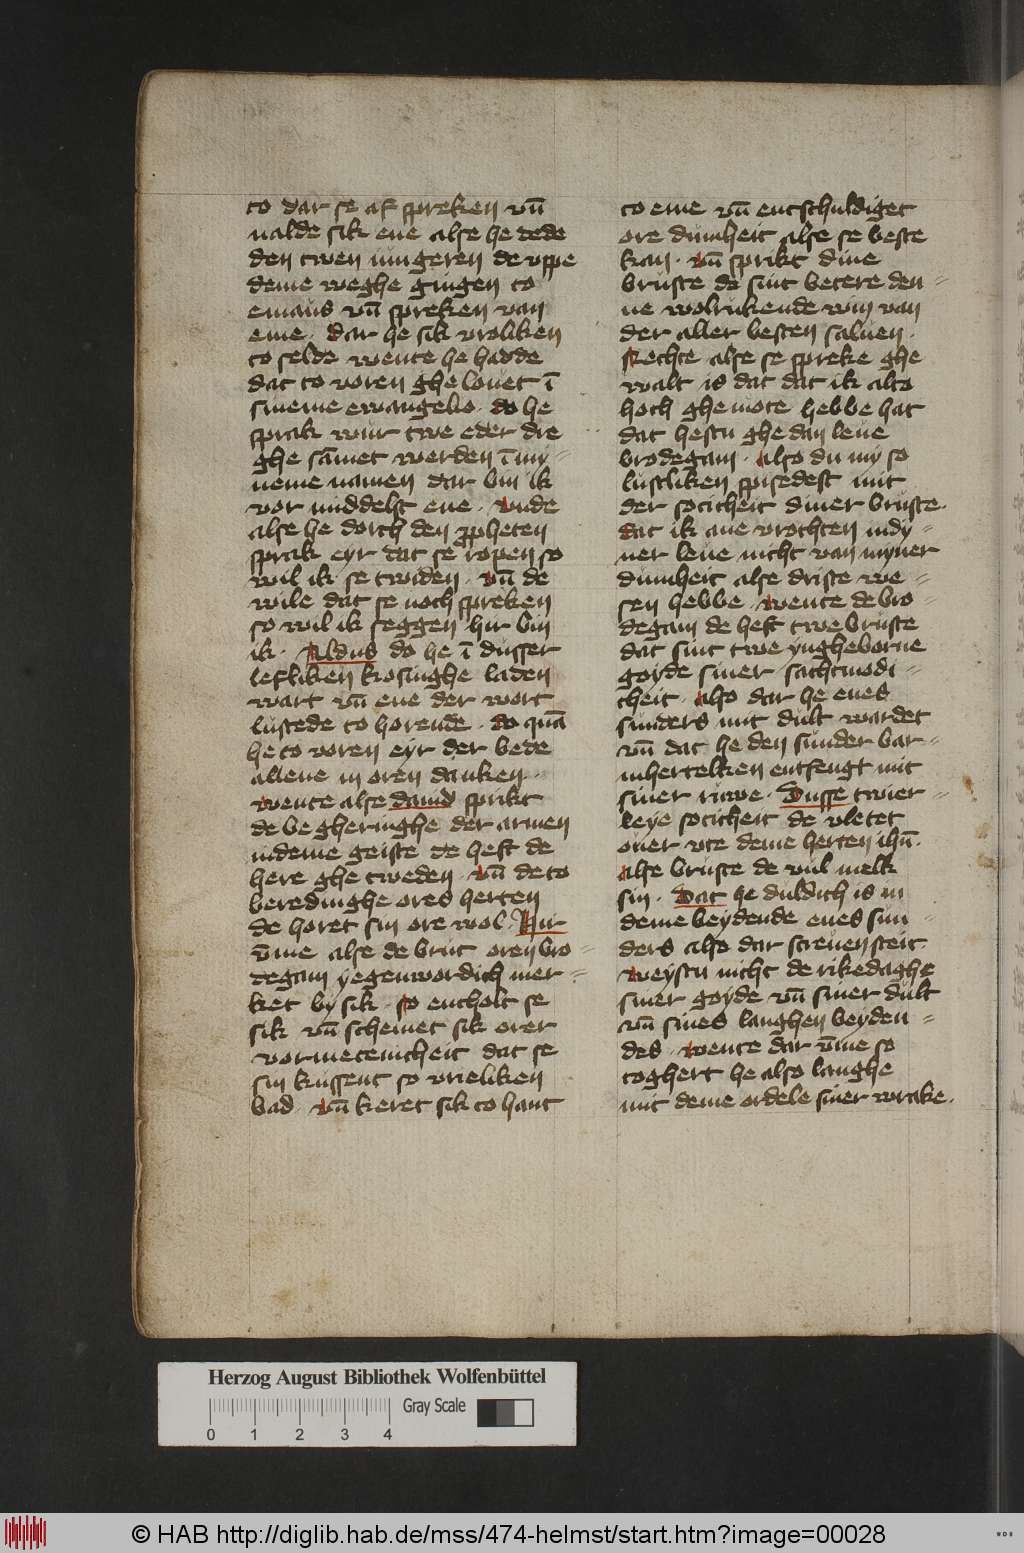 to dar se af spreken vn̄
nalde sik ene alse he dede
den twen iungeren de vppe
deme weghe gingen to
emaus vn̄ spreken van
eme · dar he sik vroliken
to selde wente he hadde
dat to voren ghe louet ī
sineme ewangelio · do he
sprak wur twe eder dre
ghe sāmet werden ī my⸗
neme namen dar bin ik
vor middelst ene · Vnde
alse he dorch den ꝓpheten
sprak eyr dat se ropen so
wil ik se twiden · vn̄ de
wile dat se noch spreken
so wil ik seggen hir bin
ik · Aldus do he ī dusser
lefliken kosinghe laden
wart vn̄ ene der wort
lustede to horende · do quā
he to voren eyr der bede
allene in oren danken ·
wente alse dauid sprikt
de be gheringhe der armen
in deme geiste de heft de
here ghe tweden · vn̄ de to
beredinghe ores herten
de horet sin ore wol · Hir
v̄me alse de brut oren bro⸗
degam yegenwordich mer⸗
ket by sik · so entholt se
sik vn̄ schemet sik orer
vormetenicheit dat se
sin kussent so vrieliken
bad · vn̄ keret sik to hant
to eme vn̄ entschuldiget
ore dumheit alse se beste
kan · vn̄ sprikt dine
bruste de sint betere den⸗
ne wolrukende win van
der aller besten saluen ·
Rechte alse se spreke ghe
walt is dat dat ik alto
hoch ghe mote hebbe hat
dat hestu ghe dan leue
brodegam · also du my so
lustliken spisedest mit
der soticheit diner bruste ·
dat ik ane vrochten in dy⸗
ner leue nicht van myner
dumheit alse driste we⸗
sen hebbe · wente de bro⸗
degam de heft twe bruste
dat sint twe yngheborne
goyde siner sachtmodi⸗
cheit · also dar he enes
sunders mit dult wardet
vn̄ dat he den sunder bar⸗
mhertelken entfengt mit
siner ruwe · Dusse twier⸗
leye soticheit de vletet
ouer vte deme herten ihū ·
alse bruste de vul melk
sin · Dat he duldich is in
deme beydende enes sun⸗
ders also dar screuen steit
weystu nicht de rikedaghe
siner goyde vn̄ siner dult
vn̄ sines langhen beyden⸗
des · wente dar v̄me so
toghert he also langhe
mit deme ordele siner wrake ·
Herzog August Bibliothek Wolfenbüttel
Gray Scale
0 1 2 3 4
© HAB http://diglib.hab.de/mss/474-helmst/start.htm?image=00028
WDB